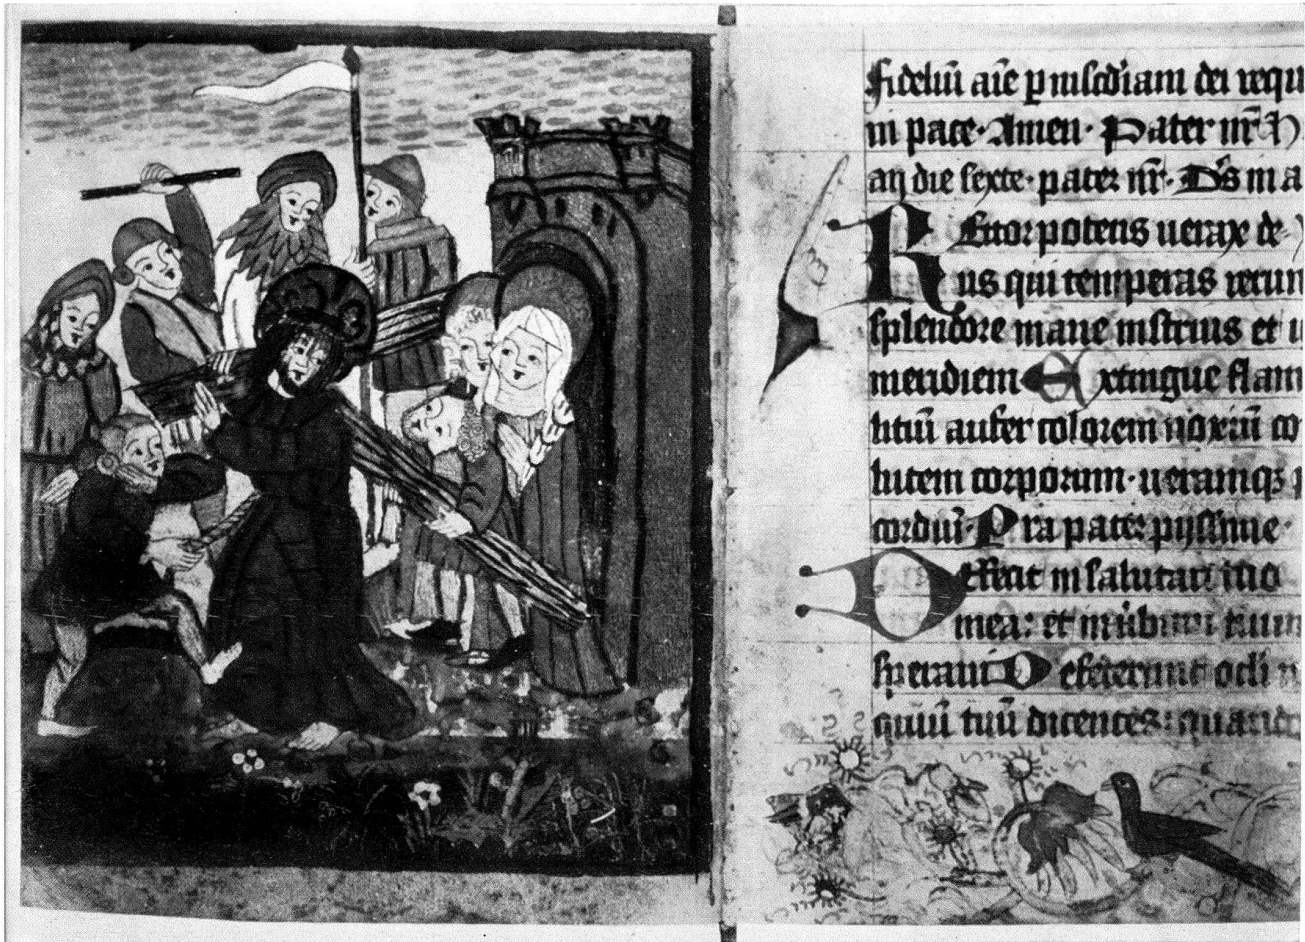 fideliū aīe p miscďiam dei requi
in pace · Amen · Pater nr̄
an die sexte · pater nr̄ · Ds in a
Rector potens uerax de
us qui temperas rerum
splendore mane instruis et
meridiem Extingue flam
litiū aufer colorem noxiū co
lutem corporum · ueramqꝫ p
cordiū · Pra pater pijssime ·
Defecit in salutari tuo
mea: et in uibum tuum
speraui Defecerunt oc̄li
quiū tuū dicentes: quando